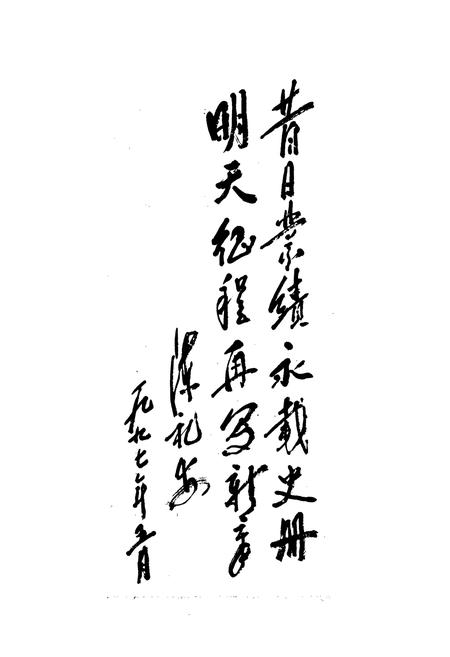 昔日业绩永载史册
明天征程再写新章
礼安
一九九七年五月